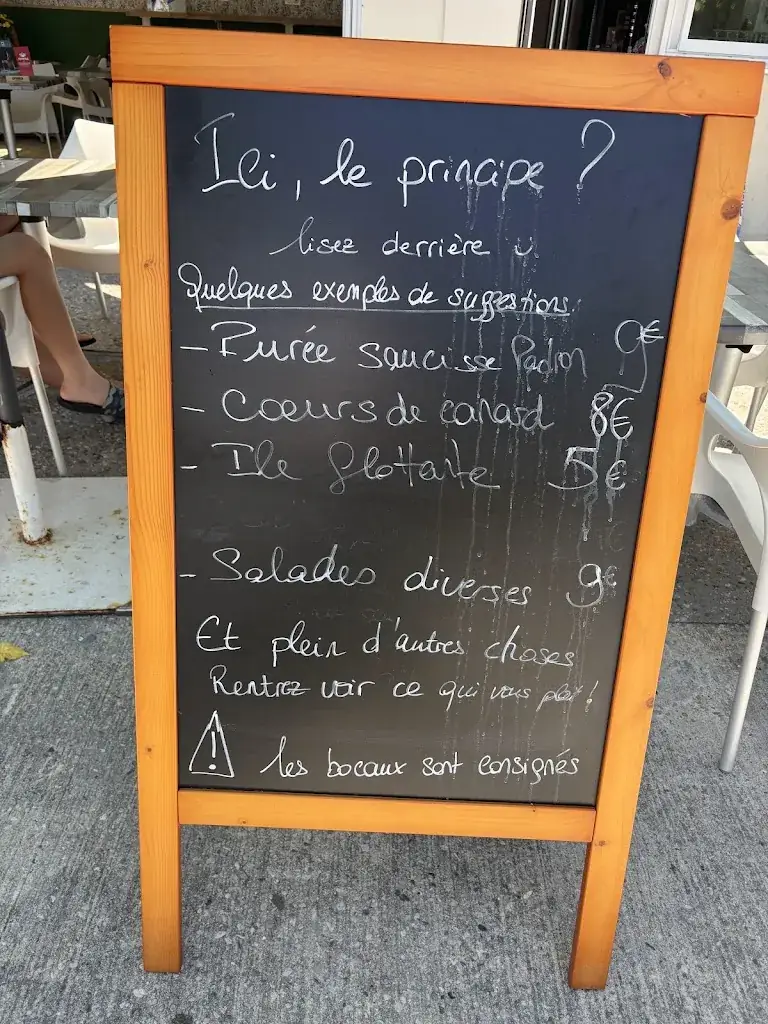 Ici, le principe ?
lisez derrière
Quelques exemples de suggestions.
- Purée saucisse Padron 9€
- Coeurs de canard 8€
- Ile flottante 5€
- Salades diverses 9€
Et plein d'autres choses
Rentrez voir ce qui vous plait !
! les bocaux sont consignés